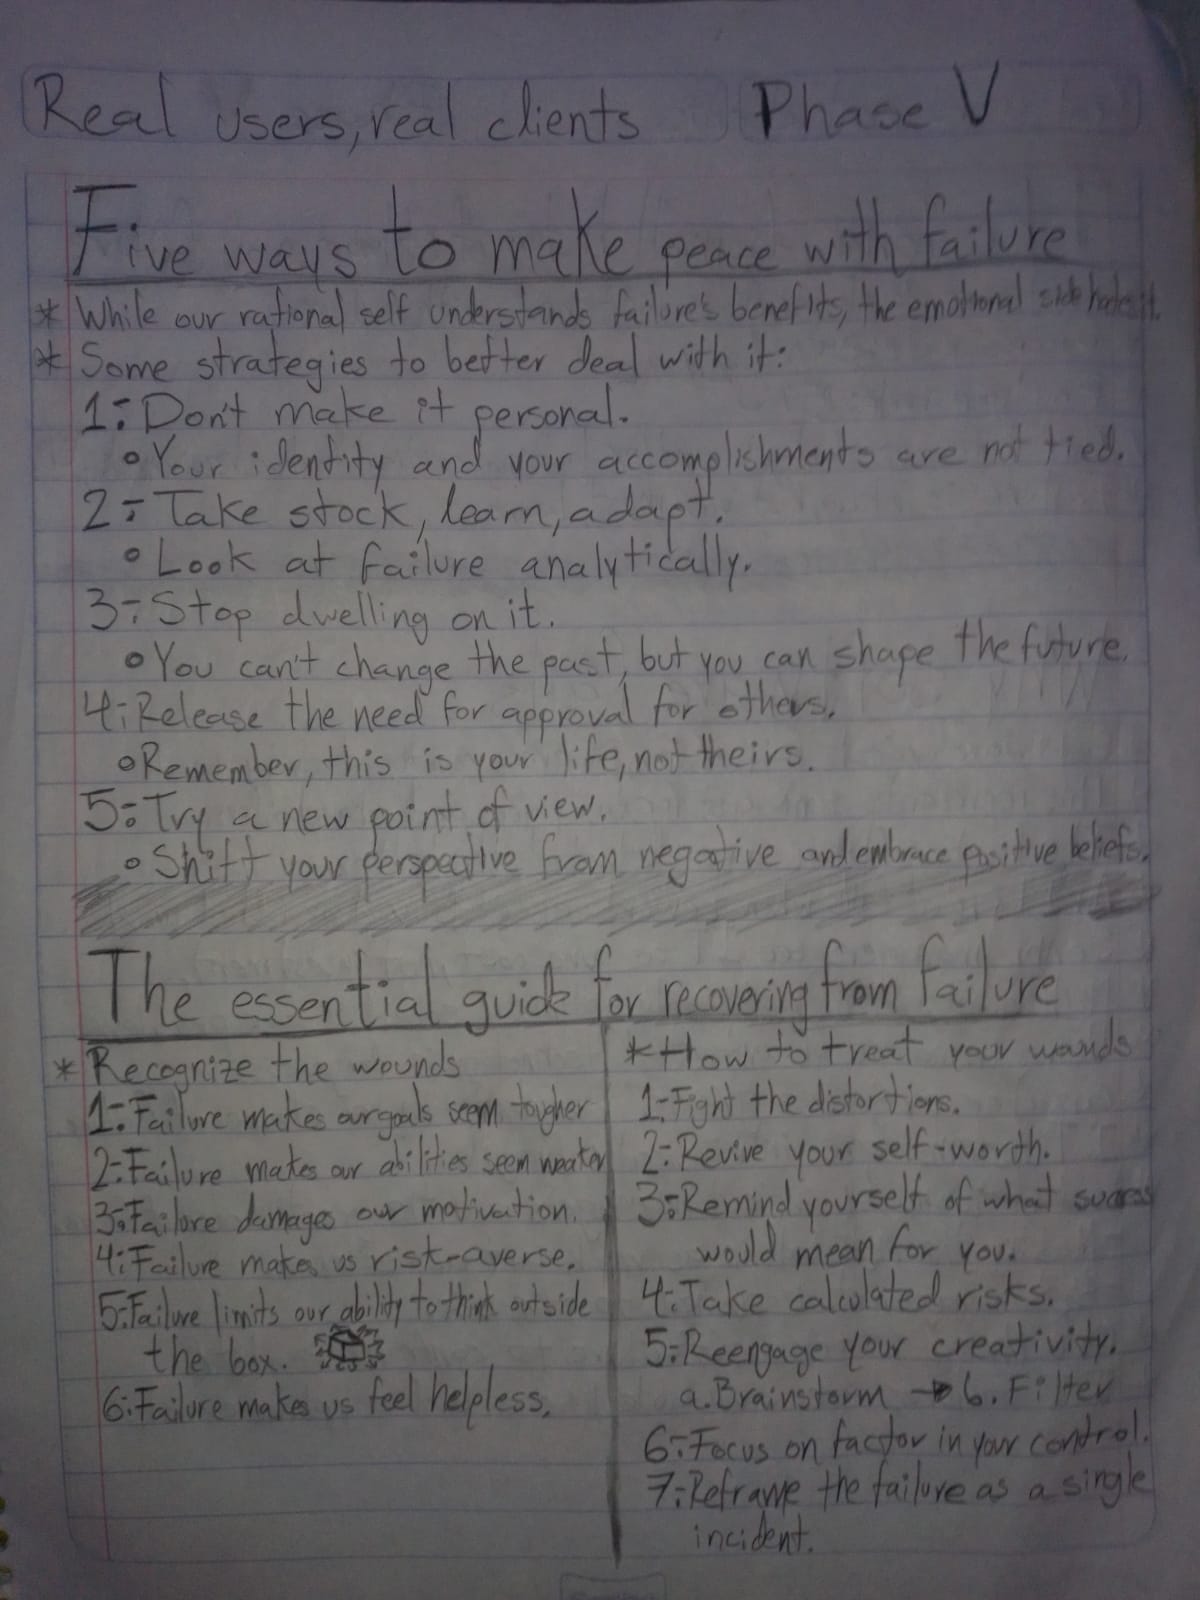 Real users, real clients Phase V
Five ways to make peace with failure
* While our rational self understands failure's benefits, the emotional side hates it.
* Some strategies to better deal with it:
1.- Don't make it personal.
° Your identity and your accomplishments are not tied.
2.- Take stock, learn, adapt.
° Look at failure analytically.
3.- Stop dwelling on it.
° You can't change the past, but you can shape the future.
4.- Release the need for approval for others.
° Remember, this is your life, not theirs.
5.- Try a new point of view.
° Shift your perspective from negative and embrace positive beliefs.
The essential guide for recovering from failure
* Recognize the wounds
1.- Failure makes our goals seem tougher
2.- Failure makes our abilities seem weaker
3.- Failure damages our motivation.
4.- Failure makes us risk-averse.
5.- Failure limits our ability to think outside
the box.
6.- Failure makes us feel helpless.
* How to treat your wounds
1.- Fight the distortions.
2.- Revive your self-worth.
3.- Remind yourself of what success
would mean for you.
4.- Take calculated risks.
5.- Reengage your creativity.
a. Brainstorm → b. Filter
6.- Focus on factor in your control.
7.- Reframe the failure as a single
incident.